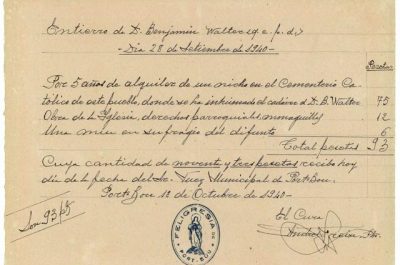 Entierro de D. Benjamin Walter (q. e. p. d.)
- Dia 28 de Setiembre de 1940 -
Pesetas
Por 5 años de alquiler de un nicho en el Cementerio Ca-
tólico de este pueblo, donde se ha inhumado el cadáver de D. B. Walter 75
Obra de la Iglesia, derechos parroquiales, monaguillos 12
Una misa en sufragio del difunto 6
Total pesetas 93
Cuya cantidad de noventa y tres pesetas recibo hoy
día de la fecha del Sr. Juez Municipal de Port-Bou.
Port-Bou 1º de Octubre de 1940 -
Son 93 pts
El Cura
FELIGRESIA DE PORT-BOU